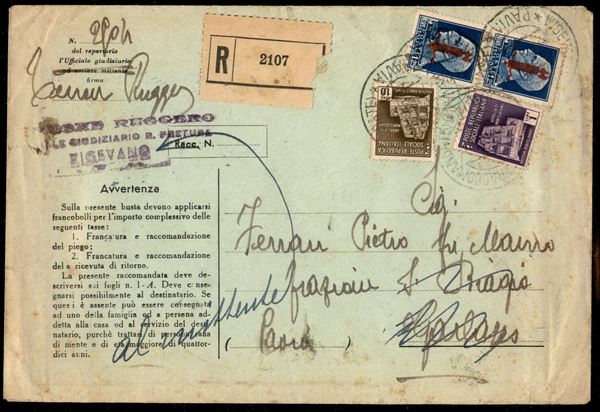 N. 2904
del repertorio
l'Ufficiale giudiziario
od usciere mittente
firma
Ruggero
RUGGERO
LE GIUDIZIARIO R. PRETURA
VIGEVANO
Racc. N.
R 2107
Avvertenza
Sulla presente busta devono applicarsi
francobolli per l'importo complessivo delle
seguenti tasse:
1. Francatura e raccomandazione
del piego;
2. Francatura e raccomandazione
del a ricevuta di ritorno.
La presente raccomandata deve de-
scriversi sui fogli n. 1-A. Deve con-
segnarsi possibilmente al destinatario. Se
questi è assente può essere consegnata
ad uno della famiglia o a persona ad-
detta alla casa od al servizio del desti-
natario, purchè trattasi di persona sana
di mente e di età maggiore di quattor-
dici anni.
al mittente
POSTE REPUBBLICA
SOCIALE ITALIANA
10
POSTE REPUBBLICA
SOCIALE ITALIANA
1
Ferrari Pietro fu Mauro
frazione S. Biagio
Garlasco
(Pavia)